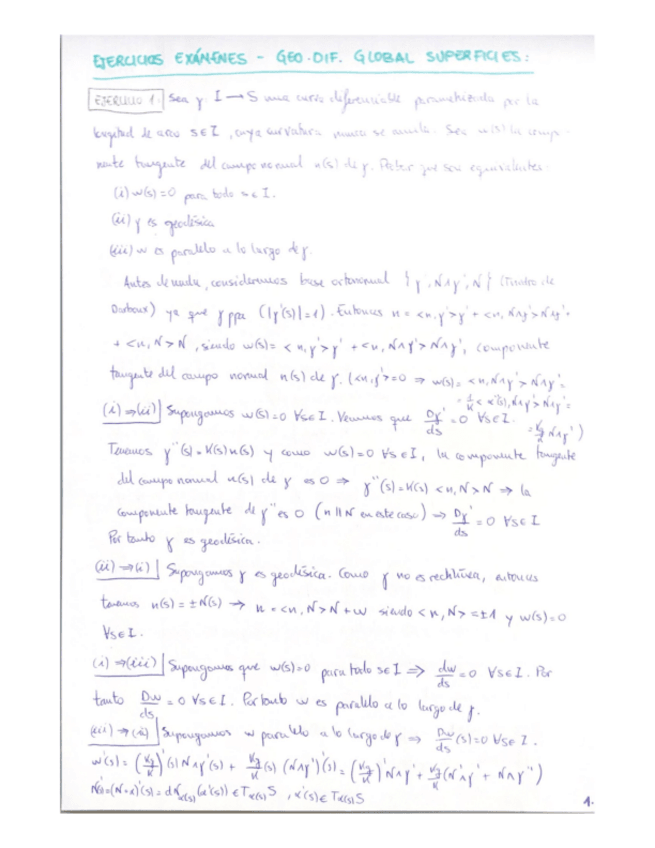 EJERCICIOS EXÁMENES - GEO. DIF. GLOBAL SUPERFICIES:
EJERCICIO 1. Sea γ: I → S una curva diferenciable parametrizada por la
longitud de arco s∈I, cuya curvatura nunca se anula. Sea w(s) la compo-
nente tangente del campo normal n(s) de γ. Probar que son equivalentes:
(i) w(s)=0 para todo s∈I.
(ii) γ es geodésica
(iii) w es paralelo a lo largo de γ.
Antes de nada, consideremos base ortonormal {γ', N∧γ', N} (Triedro de
Darboux) ya que γ ppa (|γ'(s)|=1). Entonces n = <n,γ'>γ' + <n,N∧γ'>N∧γ' +
+ <n,N>N, siendo w(s) = <n,γ'>γ' + <n,N∧γ'>N∧γ', componente
tangente del campo normal n(s) de γ. (<n,γ'>=0 ⇒ w(s) = <n,N∧γ'>N∧γ' =
= 1/K <α''(s), N∧γ'>N∧γ' =
= Kg/K N∧γ')
(i)⇒(ii) Supongamos w(s)=0 ∀s∈I. Veamos que Dγ'/ds = 0 ∀s∈I.
Tenemos γ''(s)=K(s)n(s) y como w(s)=0 ∀s∈I, la componente tangente
del campo normal n(s) de γ es 0 ⇒ γ''(s)=K(s)<n,N>N ⇒ la
componente tangente de γ'' es 0 (n∥N en este caso) → Dγ'/ds = 0 ∀s∈I
Por tanto γ es geodésica.
(ii)⇒(i) Supongamos γ es geodésica. Como γ no es rectilínea, entonces
tenemos n(s)=±N(s) → n = <n,N>N + w siendo <n,N>=±1 y w(s)=0
∀s∈I.
(i)⇒(iii) Supongamos que w(s)=0 para todo s∈I ⇒ dw/ds = 0 ∀s∈I. Por
tanto Dw/ds = 0 ∀s∈I. Por tanto w es paralelo a lo largo de γ.
(iii)⇒(ii) Supongamos w paralelo a lo largo de γ ⇒ Dw/ds (s)=0 ∀s∈I.
w'(s) = (Kg/K)'(s) N∧γ'(s) + Kg/K (s) (N∧γ')'(s) = (Kg/K)' N∧γ' + Kg/K (N'∧γ' + N∧γ'')
N'(s)=(N∘α)'(s) = dN α(s) (α'(s)) ∈ Tα(s)S, α'(s)∈Tα(s)S
1.